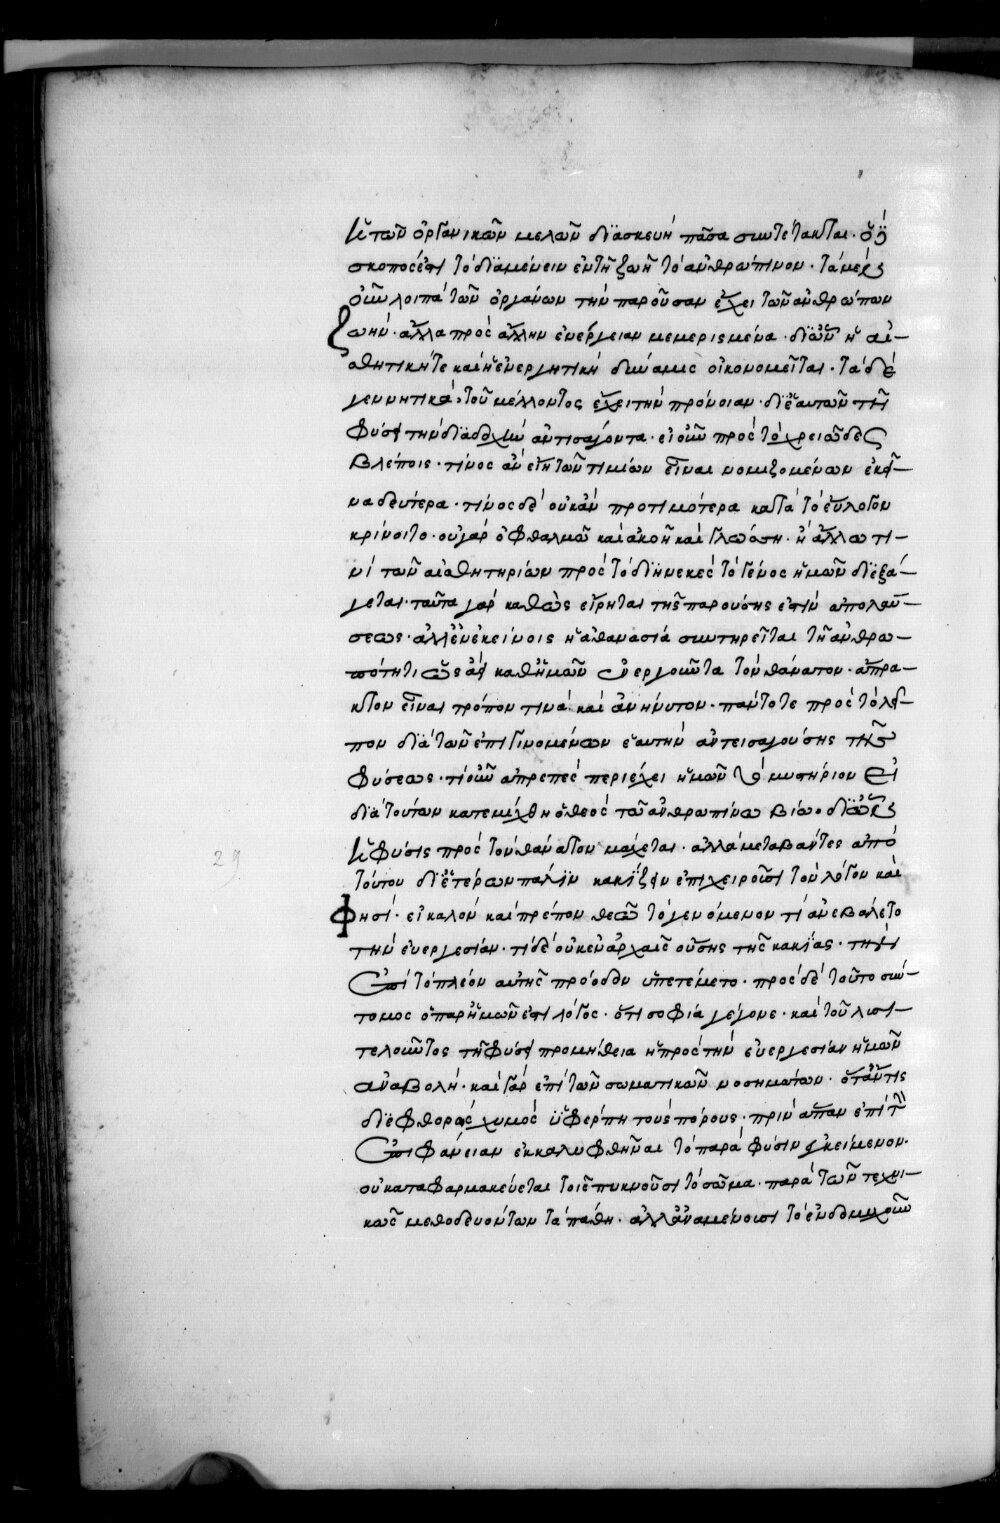 ἡ τῶν ὀργανικῶν μελῶν διασκευὴ πᾶσα συντέτακται· οὗ
σκοπός ἐστι τὸ διαμένειν ἐν τῇ ζωῇ τὸ ἀνθρώπινον· τὰ μὲν
οὖν λοιπὰ τῶν ὀργάνων τὴν παροῦσαν ἔχει τῶν ἀνθρώπων
ζωήν· ἄλλα πρὸς ἄλλην ἐνέργειαν μεμερισμένα· δι ὧν ἡ αἰ-
σθητική τε καὶ ἡ ἐνεργητικὴ δύναμις οἰκονομεῖται· τὰ δὲ
γεννητικὰ, τοῦ μέλλοντος ἔχει τὴν πρόνοιαν· δι ἑαυτῶν τῇ
φύσει τὴν διαδοχὴν ἀντισάγοντα· εἰ οὖν πρὸς τὸ χρειῶδες
βλέποις· τίνος ἂν εἴη τῶν τιμίων εἶναι νομιζομένων ἐκεῖ-
να δεύτερα· τίνος δὲ οὐκ ἂν προτιμότερα κατὰ τὸ εὔλογον
κρίνοιτο· οὐ γὰρ ὀφθαλμῶ καὶ ἀκοῆ καὶ γλώσση· ἢ ἄλλω τι-
νὶ τῶν αἰσθητηρίων πρὸς τὸ διηνεκὲς τὸ γένος ἡμῶν διεξά-
γεται· ταῦτα γὰρ καθὼς εἴρηται τῆς παρούσης ἐστὶν ἀπολαύ-
σεως· ἀλλ ἐν ἐκείνοις ἡ ἀθανασία συντηρεῖται τῆ ἀνθρω-
πότητι ὡς ἀεὶ καθ ἡμῶν ἐνεργοῦντα τὸν θάνατον· ἄπρα-
κτον εἶναι τρόπον τινὰ καὶ ἀνήνυτον· πάντοτε πρὸς τὸ λεῖ-
πον διὰ τῶν ἐπιγινομένων ἑαυτὴν ἀντεισαγούσης τῆς
φύσεως· τί οὖν ἀπρεπὲς περιέχει ἡμῶν τὸ μυστήριον εἰ
διὰ τούτων κατεμίχθη ὁ θεὸς τῶ ἀνθρωπίνω βίω· δι ὧν
ἡ φύσις πρὸς τὸν θάνατον μάχεται· ἀλλὰ μεταβάντες ἀπὸ
τούτου δι ἑτέρων πάλιν κακίζειν ἐπιχειροῦσι τὸν λόγον καὶ
φησί· εἰ καλὸν καὶ πρέπον θεῶ τὸ γενόμενον τί ἀνεβάλετο
τὴν εὐεργεσίαν· τί δὲ οὐκ ἐν ἀρχαῖς οὔσης τῆς κακίας· τὴν
ἐπὶ τὸ πλέον αὐτῆς πρόοδον ὑπετέμετο· πρὸς δὲ τοῦτο σύν-
τομος ὁ παρ ἡμῶν ἐστι λόγος· ὅτι σοφία γέγονε· καὶ τοῦ λυσι-
τελοῦντος τῆ φύσει προμήθεια ἡ πρὸς τὴν εὐεργεσίαν ἡμῶν
ἀναβολή· καὶ γὰρ ἐπὶ τῶν σωματικῶν νοσημάτων· ὅταν τις
διεφθορὼς χυμὸς ὑφέρπη τοὺς πόρους· πρὶν ἅπαν ἐπὶ τὴν
ἐπιφάνειαν ἐκκαλυφθῆναι τὸ παρὰ φύσιν ἐγκείμενον·
οὐ καταφαρμακεύεται τοῖς πυκνοῦσι τὸ σῶμα· παρὰ τῶν τεχνι-
κῶς μεθοδευόντων τὰ πάθη· ἀλλ ἀναμένουσι τὸ ἐνδομυχοῦν